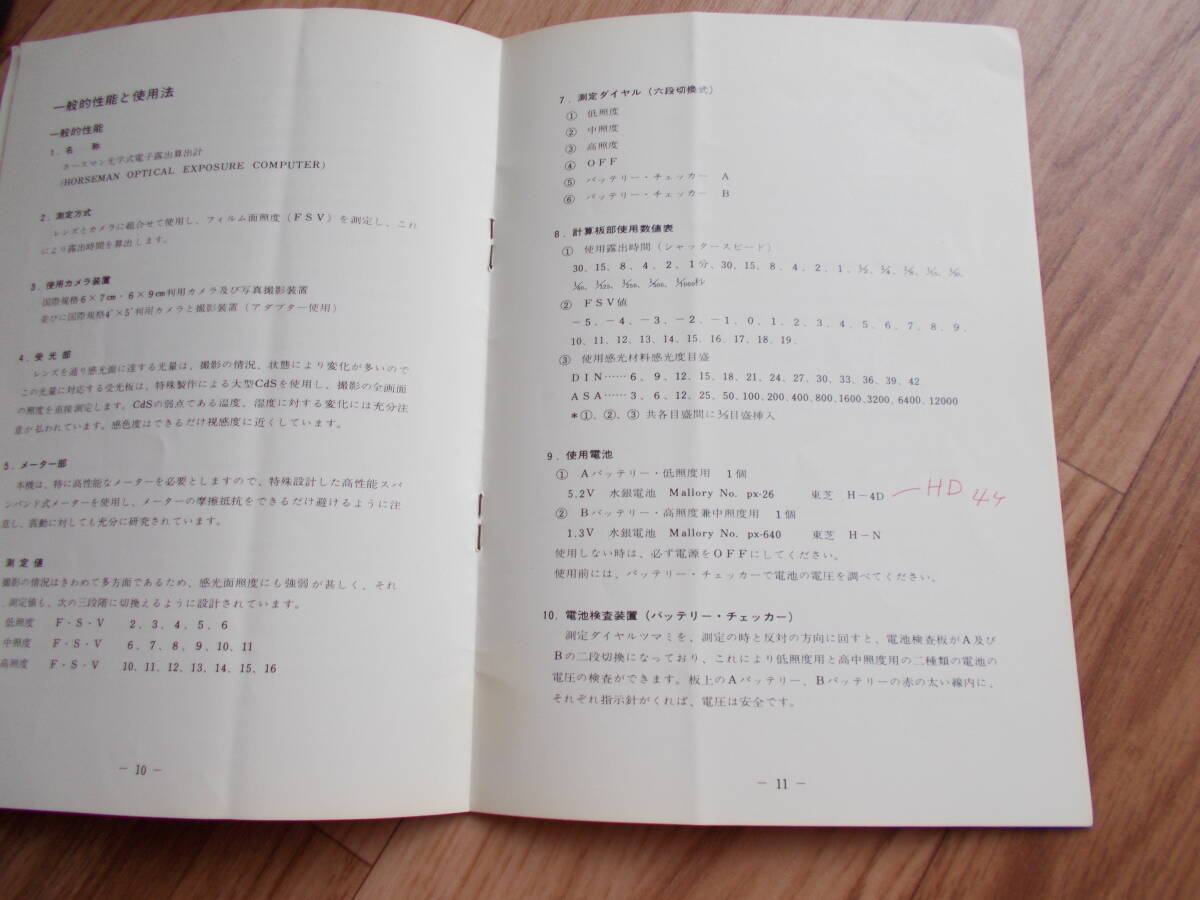 一般的性能と使用法
一般的性能
1．名　　称
ホースマン光学式電子露出算出計
(HORSEMAN OPTICAL EXPOSURE COMPUTER)
2．測定方式
レンズとカメラに組合せて使用し、フィルム面照度(FSV)を測定し、これ
により露出時間を算出します。
3．使用カメラ装置
国際規格6×7㎝・6×9㎝判用カメラ及び写真撮影装置
並びに国際規格4″×5″判用カメラと撮影装置(アダプター使用)
4．受光部
レンズを通り感光面に達する光量は、撮影の情況、状態により変化が多いので
この光量に対応する受光板は、特殊製作による大型CdSを使用し、撮影の全画面
の照度を直接測定します。CdSの弱点である温度、湿度に対する変化には充分注
意が払われています。感色度はできるだけ視感度に近くしています。
5．メーター部
本機は、特に高性能なメーターを必要としますので、特殊設計した高性能スパ
ンバンド式メーターを使用し、メーターの摩擦抵抗をできるだけ避けるように注
意し、震動に対しても充分に研究されています。
測定値
撮影の情況はきわめて多方面であるため、感光面照度にも強弱が甚しく、それ
測定値も、次の三段階に切換えるように設計されています。
低照度　F・S・V　2、3、4、5、6
中照度　F・S・V　6、7、8、9、10、11
高照度　F・S・V　10、11、12、13、14、15、16
－ 10 －
7．測定ダイヤル(六段切換式)
① 低照度
② 中照度
③ 高照度
④ OFF
⑤ バッテリー・チェッカー　A
⑥ バッテリー・チェッカー　B
8．計算板部使用数値表
① 使用露出時間(シャッタースピード)
30、15、8、4、2、1分、30、15、8、4、2、1、½、¼、⅛、1/15、1/30、
1/60、1/125、1/250、1/500、1/1000秒
② FSV値
－5、－4、－3、－2、－1、0、1、2、3、4、5、6、7、8、9、
10、11、12、13、14、15、16、17、18、19、
③ 使用感光材料感光度目盛
DIN……6、9、12、15、18、21、24、27、30、33、36、39、42
ASA……3、6、12、25、50、100、200、400、800、1600、3200、6400、12000
＊①、②、③ 共各目盛間に⅓目盛挿入
9．使用電池
① Aバッテリー・低照度用　1個
5.2V　水銀電池　Mallory No. px-26　東芝　H－4D － HD 4ケ
② Bバッテリー・高照度兼中照度用　1個
1.3V　水銀電池　Mallory No. px-640　東芝　H－N
使用しない時は、必ず電源をOFFにしてください。
使用前には、バッテリー・チェッカーで電池の電圧を調べてください。
10．電池検査装置(バッテリー・チェッカー)
測定ダイヤルツマミを、測定の時と反対の方向に回すと、電池検査板がA及び
Bの二段切換になっており、これにより低照度用と高中照度用の二種類の電池の
電圧の検査ができます。板上のAバッテリー、Bバッテリーの赤の太い線内に、
それぞれ指示針がくれば、電圧は安全です。
－ 11 －